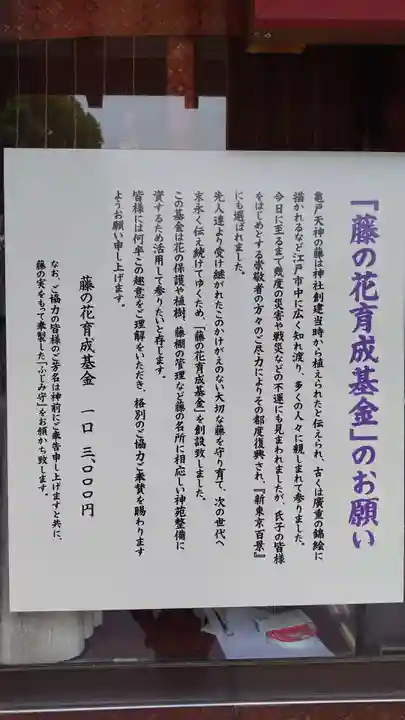 「藤の花育成基金」のお願い
亀戸天神の藤は神社創建当時から植えられたと伝えられ、古くは廣重の錦絵に
描かれるなど江戸市中に広く知れ渡り、多くの人々に親しまれて参りました。
今日に至るまで幾度の災害や戦災などの不運にも見まわれましたが、氏子の皆様
をはじめとする崇敬者の方々のご尽力によりその都度復興され、『新東京百景』
にも選ばれました。
先人達より受け継がれたこのかけがえのない大切な藤を守り育て、次の世代へ
末永く伝え続けてゆくため、「藤の花育成基金」を創設致しました。
この基金は花の保護や植樹、藤棚の管理など藤の名所に相応しい神苑整備に
資するため活用して参りたいと存じます。
皆様には何卒この趣意をご理解をいただき、格別のご協力ご奉賛を賜わります
ようお願い申し上げます。
藤の花育成基金　一口　三、〇〇〇円
なお、ご協力の皆様のご芳名は神前にご奉告申し上げますと共に、
藤の実をもって奉製した「ふじみ守」をお頒かち致します。